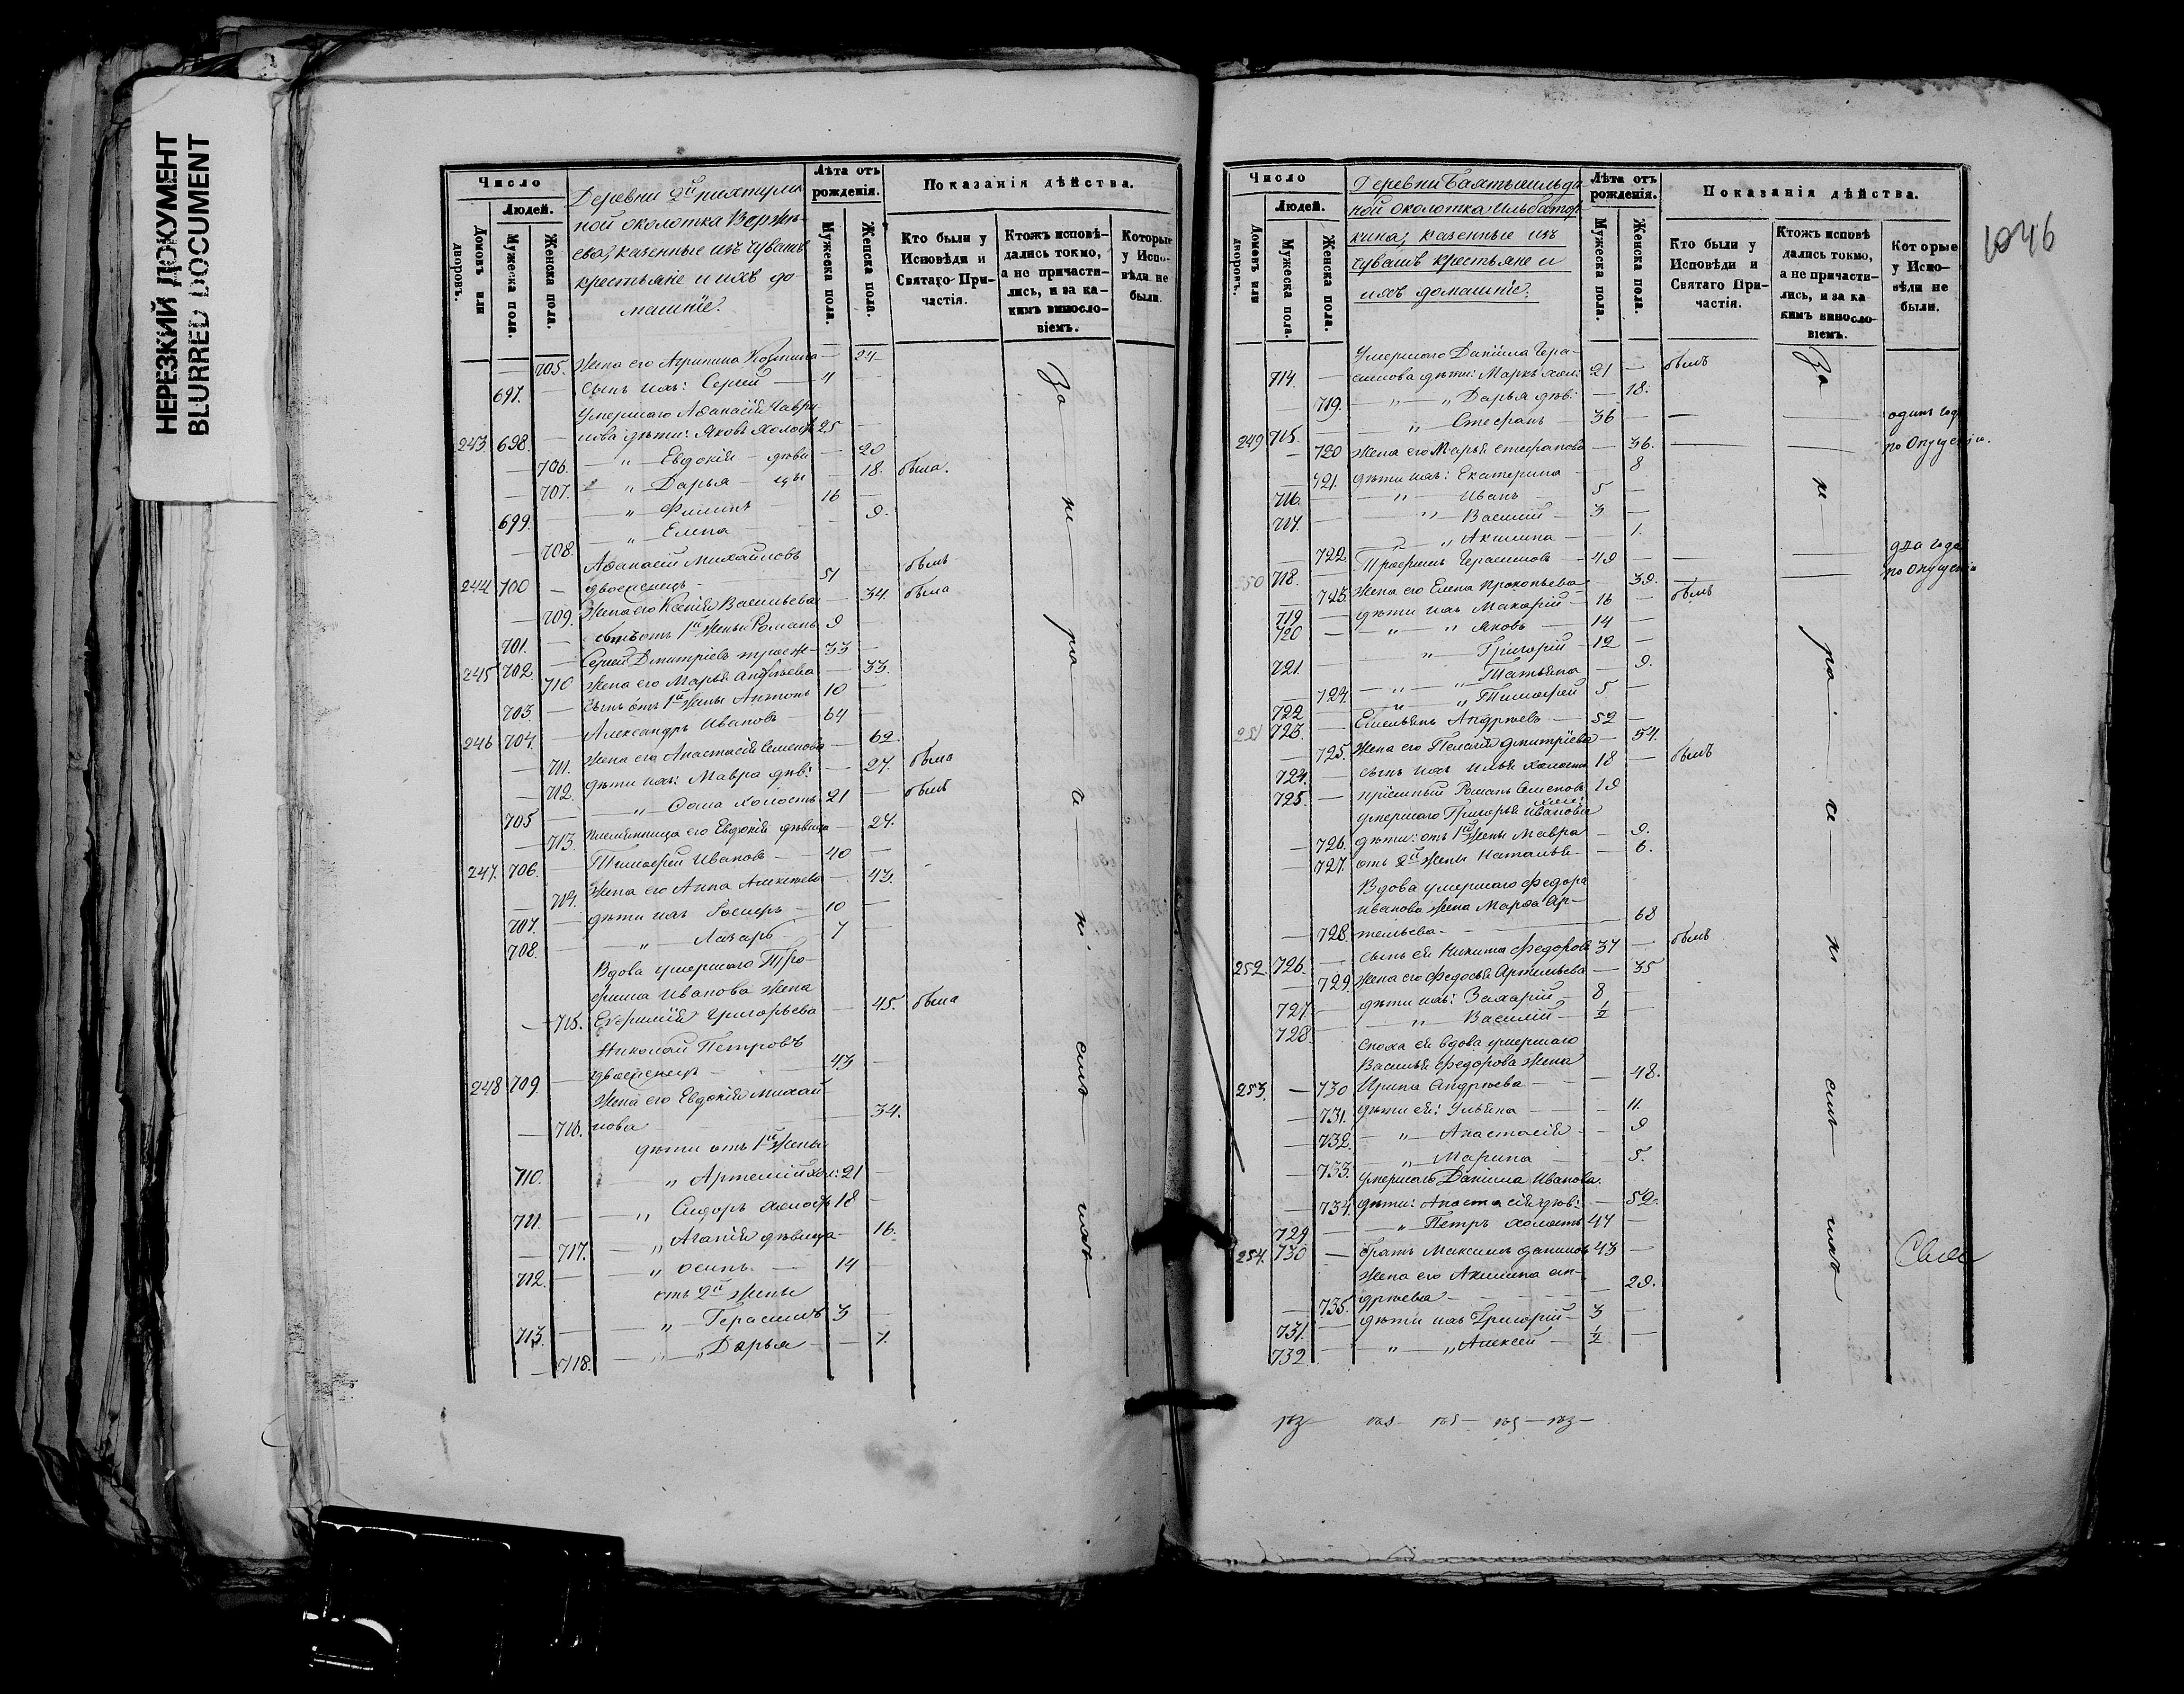 НЕРЕЗКИЙ ДОКУМЕНТ
BLURRED DOCUMENT
Число
Людей.
Домовъ или дворовъ.
Мужеска пола.
Женска пола.
Деревни 2й
ной околотка
казенные изъ чувашъ
крестьяне и ихъ до-
машніе.
Лѣта отъ рожденія.
Мужеска пола.
Женска пола.
Показанія дѣйства.
Кто были у Исповѣди и Святаго При-частія.
Ктожъ исповѣ-дались токмо, а не причасти-лись, и за ка-кимъ винословіемъ.
Которые у Испо-вѣди не были.
705. Жена его Агрипина 24
697. сынъ ихъ: Сергей 4
Умершаго Афанасія Гаври-
243 698. лова дѣти: Яковъ холостъ 25
706. " Евдокія дѣви 20
707. " Дарья цы 18. была.
699. " Филипъ 16
708. " Елена 9.
Афанасій Михайловъ
244 700 двоеженецъ 51 былъ
709. Жена его Ксенія Васильева 34. была
701. сынъ отъ 1й жены Романъ 9
245 702 Сергей Дмитріевъ троеж- 33
710 Жена его Марья Андреева 33.
703. сынъ отъ 1й жены Антонъ 10
246 704. Александръ Ивановъ 64
711. Жена его Анастасія Семенова 62.
712. дѣти ихъ: Мавра дѣв: 27. была
705 " Фома холостъ 21 былъ
713. племянница его Евдокія дѣвица 24.
247. 706. Тимофей Ивановъ 40
714. Жена его Анна Алексѣева 43.
707. дѣти ихъ 10
708. " Лазарь 7
Вдова умершаго Тро-
фима Иванова жена
715. Евфимія Григорьева 45. была
Николай Петровъ
248 709. двоеженецъ 43
Жена его Евдокія Михай-
716. лова 34.
дѣти отъ 1й жены
710. " Артемій хол: 21
711. " Сидоръ холостъ 18
717. " Агафія дѣвица 16.
712. " Осипъ 14
отъ 2й жены
713. " Герасимъ 3
718. " Дарья 7.
За — не — ра — че — ні — емъ — ихъ
1046
Число
Людей.
Домовъ или дворовъ.
Мужеска пола.
Женска пола.
Деревни Бахтыгильди-
ной околотка Ильбатор
кина, казенные изъ
чувашъ крестьяне и
ихъ домашніе.
Лѣта отъ рожденія.
Мужеска пола.
Женска пола.
Показанія дѣйства.
Кто были у Исповѣди и Святаго При-частія.
Ктожъ исповѣ дались токмо, а не причасти-лись, и за ка кимъ винословіемъ.
Которые у Испо-вѣди не были.
Умершаго Даніила Гера-
714. симова дѣти: Маркъ хол: 21 былъ
719. " Дарья дѣв: 18.
249 715. " Стефанъ 36 одинъ годъ
720 Жена его Марья Стефанова 36. по опущенію.
721. дѣти ихъ: Екатерина 8
716. " Иванъ 5
717. " Василій 3
722 " Акилина 1.
250 718 Трофимъ Герасимовъ 49 два года
723. Жена его Елена Прокопьева 39. по опущенію
719 дѣти ихъ Макарій 16 былъ
720 " Яковъ 14
721. " Григорій 12
724. " Татьяна 9.
722 " Тимофей 5
251 723. Емельянъ Андреевъ 52
725. Жена его Пелагія Дмитріева 54.
724. сынъ ихъ Илья холостъ 18 былъ
725. пріемный Романъ Семеновъ хол: 19
умершаго Григорья Иванова
726. дѣти: отъ 1й жены Мавра 9.
727. отъ 2й жены Наталья 6.
Вдова умершаго Федора
Иванова жена Марфа Ар-
728. темьева 68
252 726. сынъ ея Никита Федоровъ 37 былъ
729. Жена его Федосья Артемьева 35
727. дѣти ихъ: Захарій 8
728 " Василій ½
сноха ея вдова умершаго
Василья Федорова жена
253. 730 Ирина Андреева 48.
731. дѣти ея: Ульяна 11.
732. " Анастасія 9
733. " Марина 5.
умершаго Даніила Иванова
734. дѣти: Анастасія дѣв: 52.
729 " Петръ холостъ 47
254. 730 братъ Максимъ Даниловъ 43
Жена его Акилина Ан-
735. дреева 29.
731. дѣти ихъ Григорій 3
732 " Алексей ½
За — не — ра — че — ні — емъ — ихъ